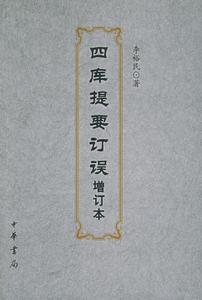 李裕民◎著
四库提要订误增订本
中華書局